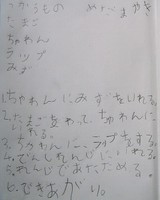 つかうもの　めだまやき
たまご
ちゃわん
ラップ
みず
1.ちゃわんにみずをいれる。
2.たまごをわって、ちゃわんに
いれる。
3.ちゃわんに、ラップをする。
4.でんしれんじにいれる。
5.れんじであたためる。
6.できあがり。